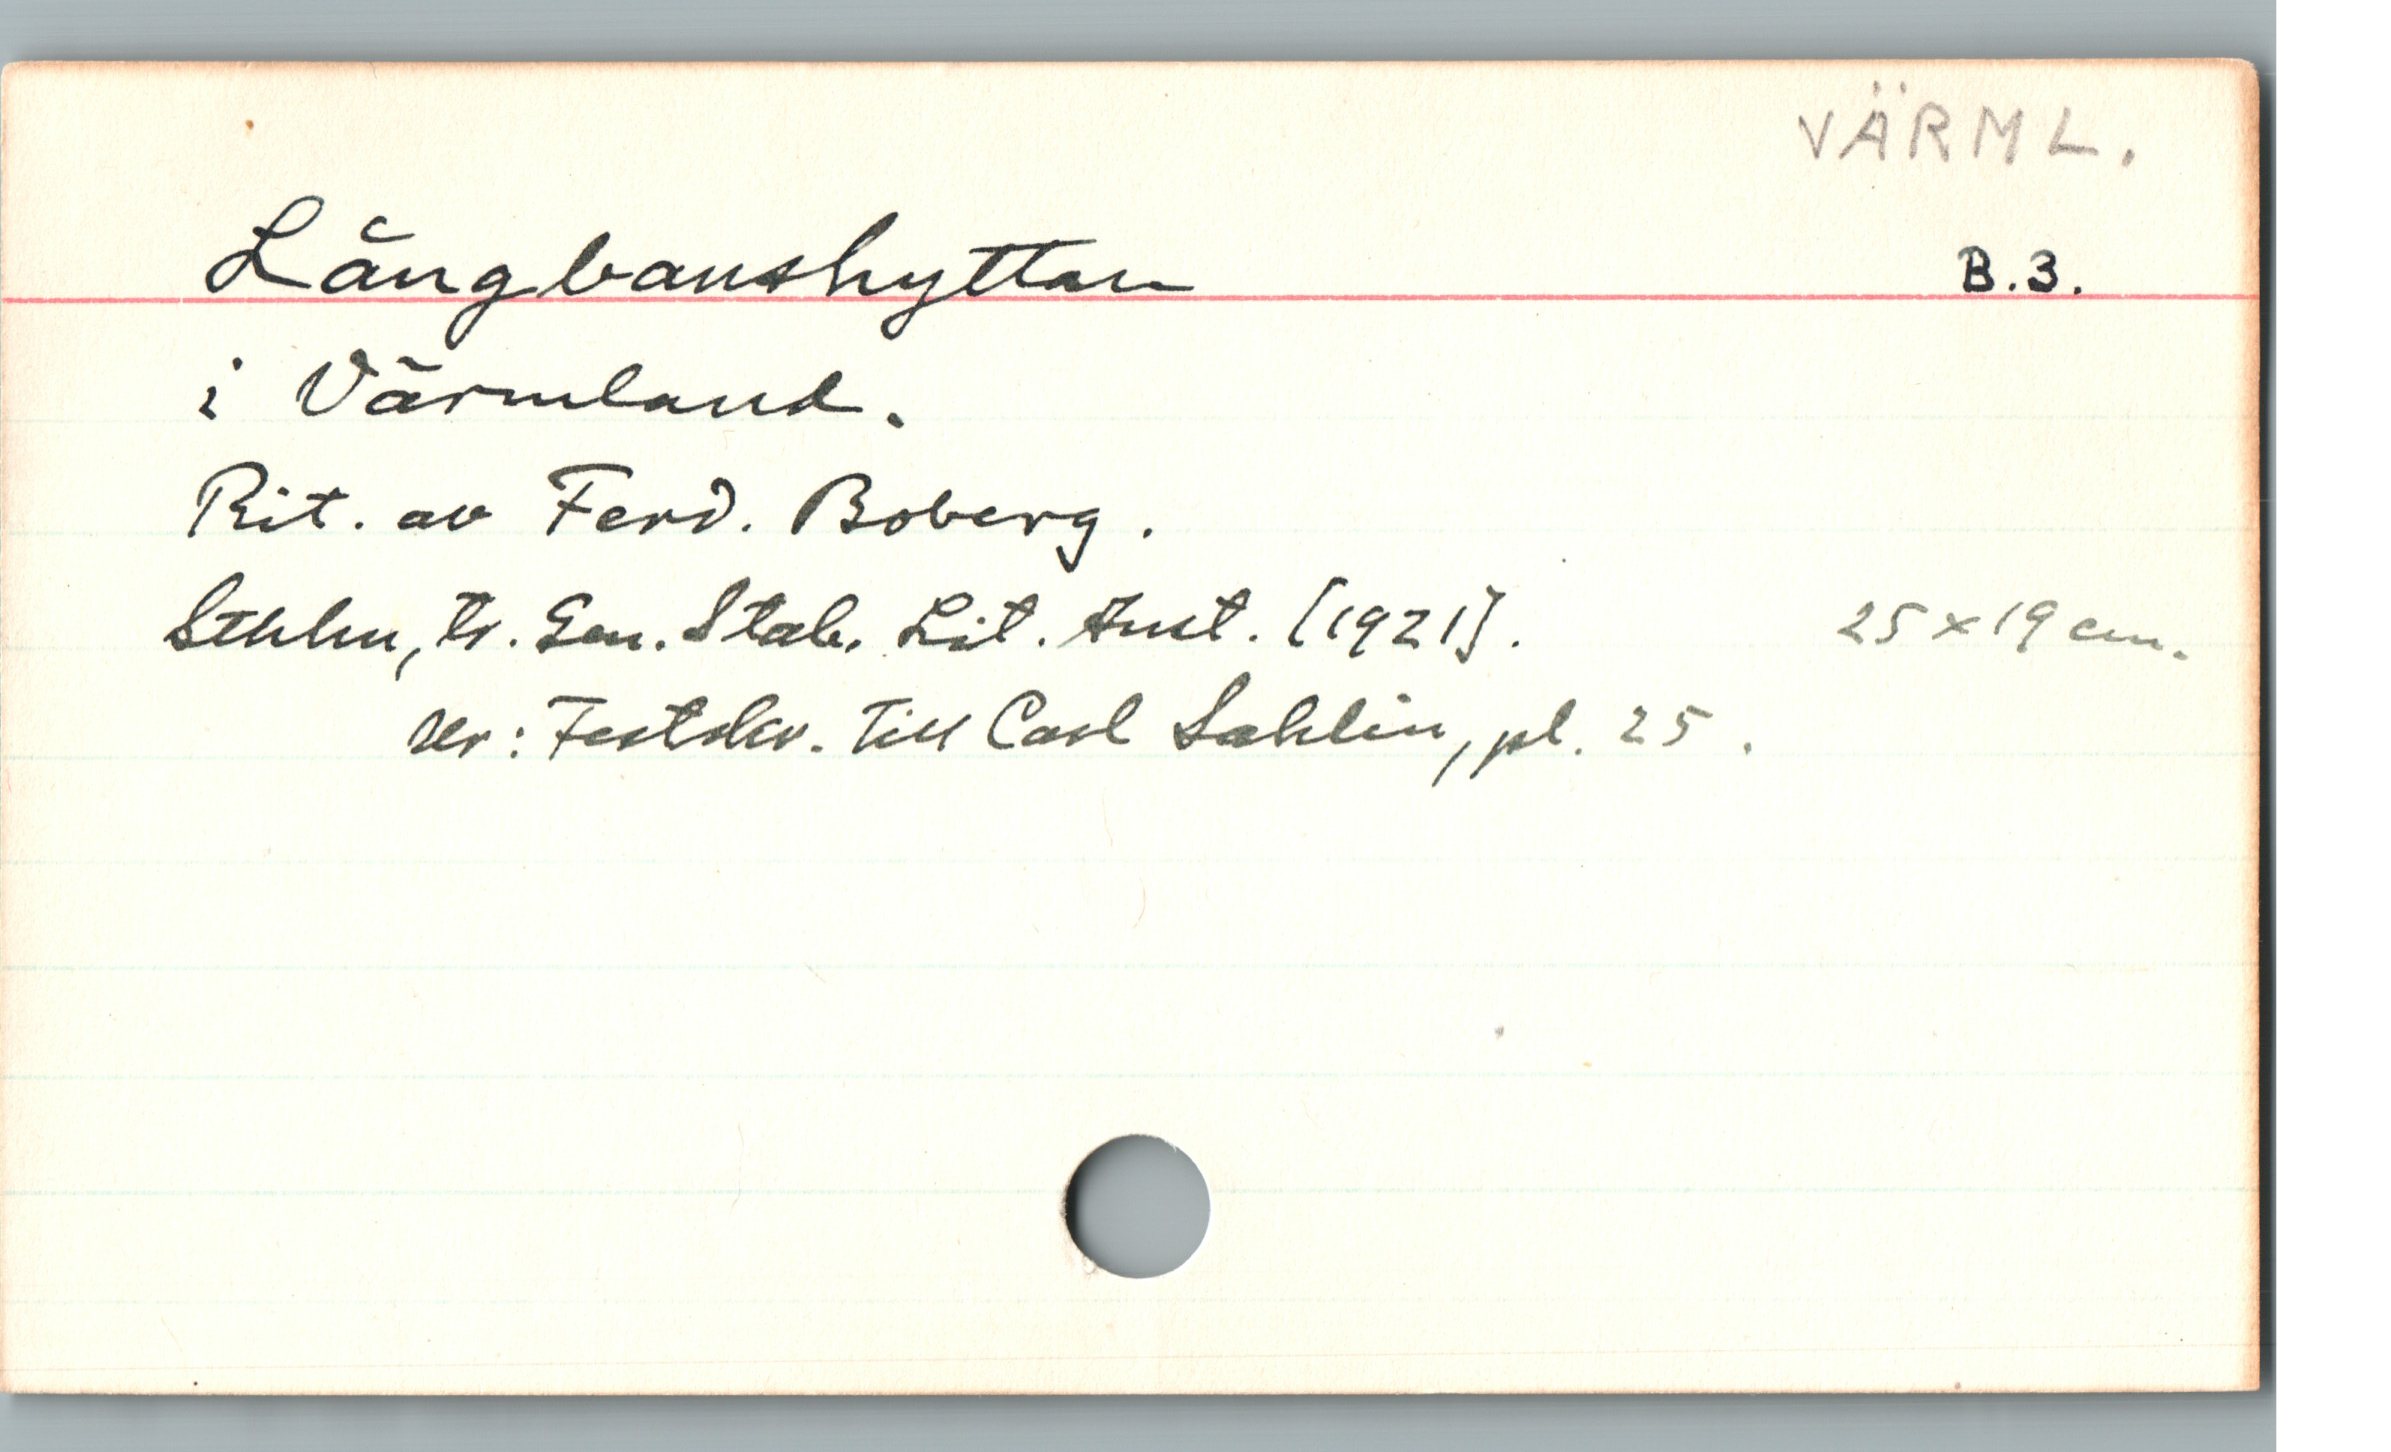 VÄRML.
Långbanshyttan B.3.
i Värmland.
Rit. av Ferd. Boberg.
Sthlm, tr. Gen. Stab. Lit. Anst. [1921]. 25 x 19 cm.
Ur: Festskr. till Carl Sahlin, pl. 25.